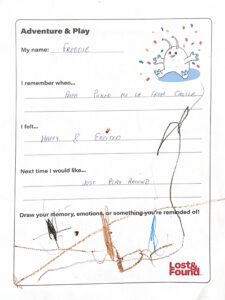 Adventure & Play
My name: FREDDIE
I remember when...
PAPA PICKED ME UP FROM CASTLE
I felt...
HAPPY & EXCITED
Next time I would like...
JUST PLAY AROUND
Draw your memory, emotions, or something you're reminded of!
Lost&
Found.